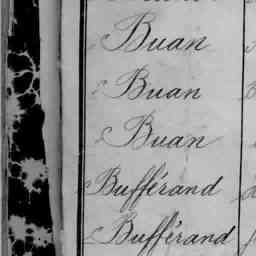 Buan
Buan
Buan
Bufférand
Bufférand